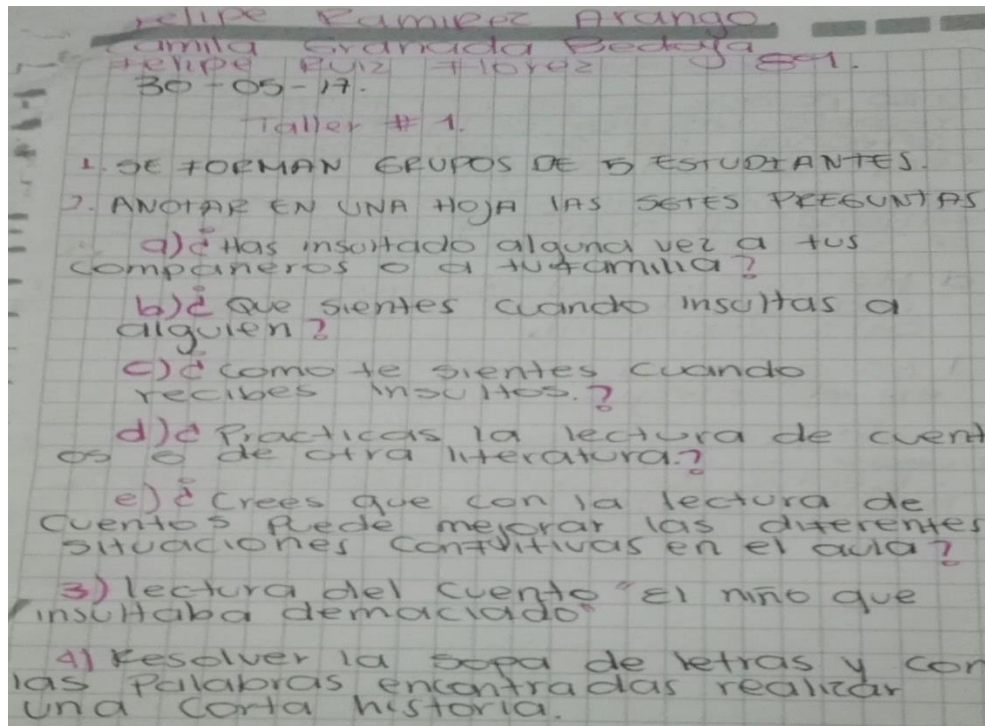 Felipe Ramirez Arango
Camila Granada Bedoya
Felipe Ruiz Florez
30-05-17.
Taller # 1.
1. SE FORMAN GRUPOS DE 5 ESTUDIANTES.
2. ANOTAR EN UNA HOJA LAS SETES PREGUNTAS
a) ¿Has insultado alguna vez a tus
compañeros o a tu familia?
b) ¿Que sientes cuando insultas a
alguien?
c) ¿como te sientes cuando
recibes insultos.?
d) ¿Practicas la lectura de cuent
os o de otra literatura.?
e) ¿Crees que con la lectura de
cuentos Puede mejorar las diferentes
situaciones conflitivas en el aula?
3) lectura del cuento "El niño que
insultaba demaciado"
4) Resolver la sopa de letras y con
las Palabras encontradas realizar
una corta historia.